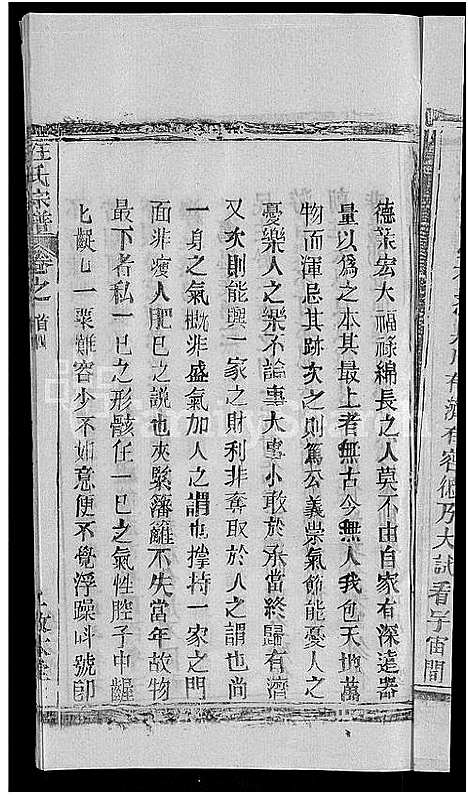 有濟有容德乃大試看宇宙間
德業宏大福祿綿長之人莫不由自家有深遠器
量以爲之本其最上者無古今無人我包天地萬
物而渾忌其跡次之則篤公義崇氣節能憂人之
憂樂人之樂不論事大事小敢於承當終歸有濟
又次則能興一家之財利非奪取於人之謂也尚
一身之氣概非盛氣加人之謂也撑持一家之門
面非瘦人肥己之說也夾緊籓籬不失當年故物
最下者私一己之形骸任一己之氣性腔子中齷
齪一粟難容少不如意便不覺浮躁叫號卽
汪氏宗譜 卷之首